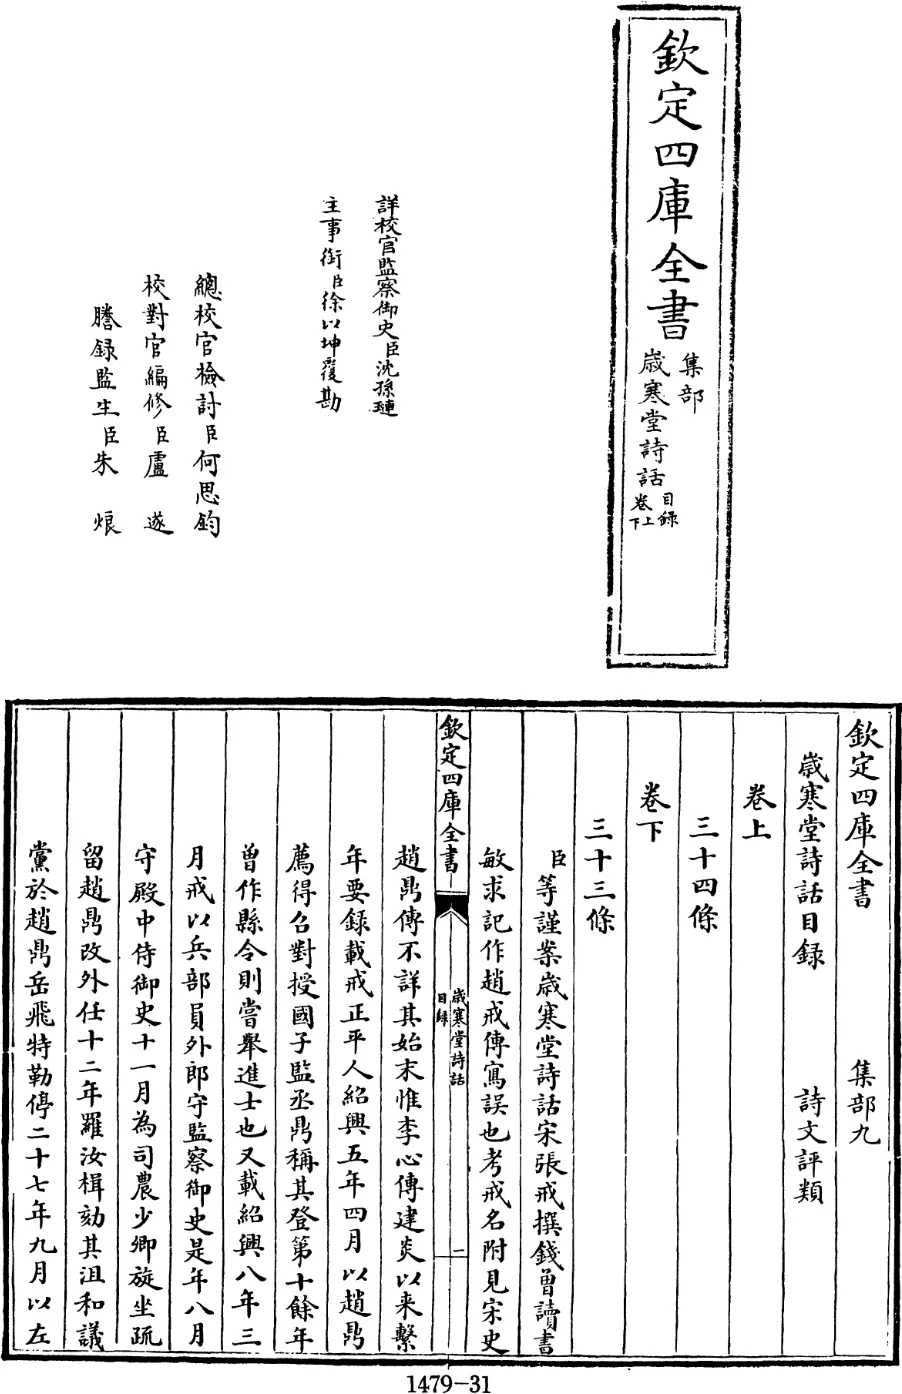 欽定四庫全書
集部
歲寒堂詩話
目録
卷上
下
詳校官監察御史臣沈孫璉
主事銜臣徐以坤覆勘
總校官檢討臣何思鈞
校對官編修臣盧遂
謄録監生臣朱烺
欽定四庫全書 集部九
歲寒堂詩話目録 詩文評類
卷上
三十四條
卷下
三十三條
臣等謹案歲寒堂詩話宋張戒撰錢曾讀書
敏求記作趙戒傳寫誤也考戒名附見宋史
欽定四庫全書
歲寒堂詩話
目録
一
趙鼎傳不詳其始末惟李心傳建炎以来繫
年要錄載戒正平人紹興五年四月以趙鼎
薦得召對授國子監丞鼎稱其登第十餘年
曽作縣令則嘗舉進士也又載紹興八年三
月戒以兵部員外郎守監察御史是年八月
守殿中侍御史十一月為司農少卿旋坐疏
留趙鼎改外任十二年羅汝楫劾其沮和議
黨於趙鼎岳飛特勒停二十七年九月以左
1479-31